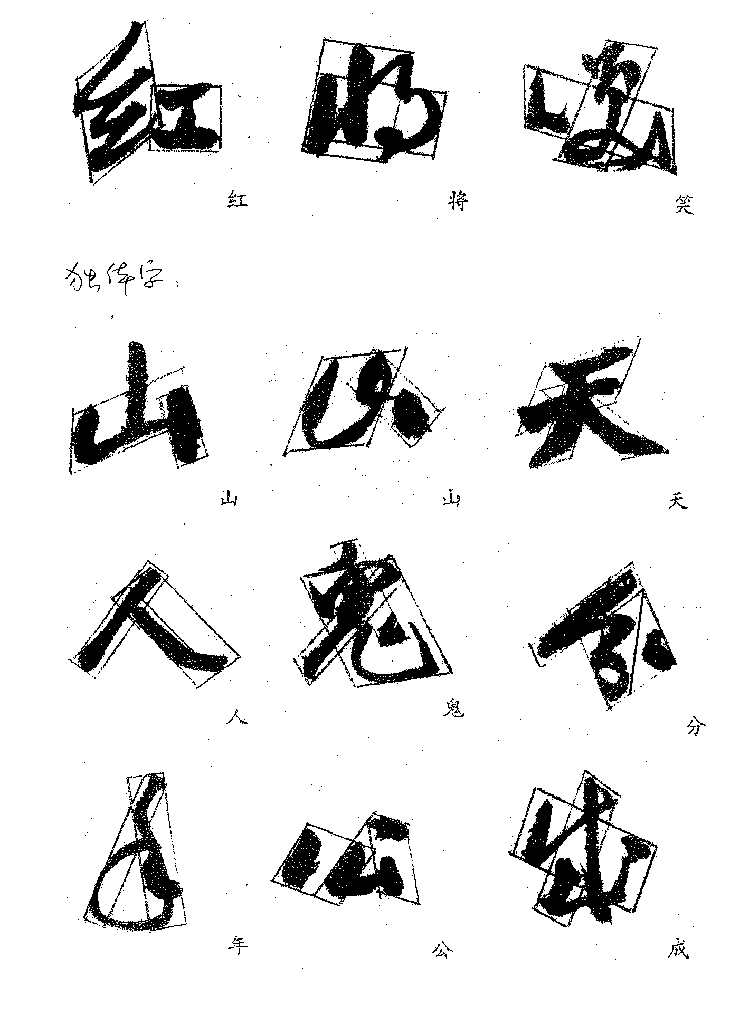 红 将 笑
独体字:
山 山 天
人 鬼 分
年 公 成